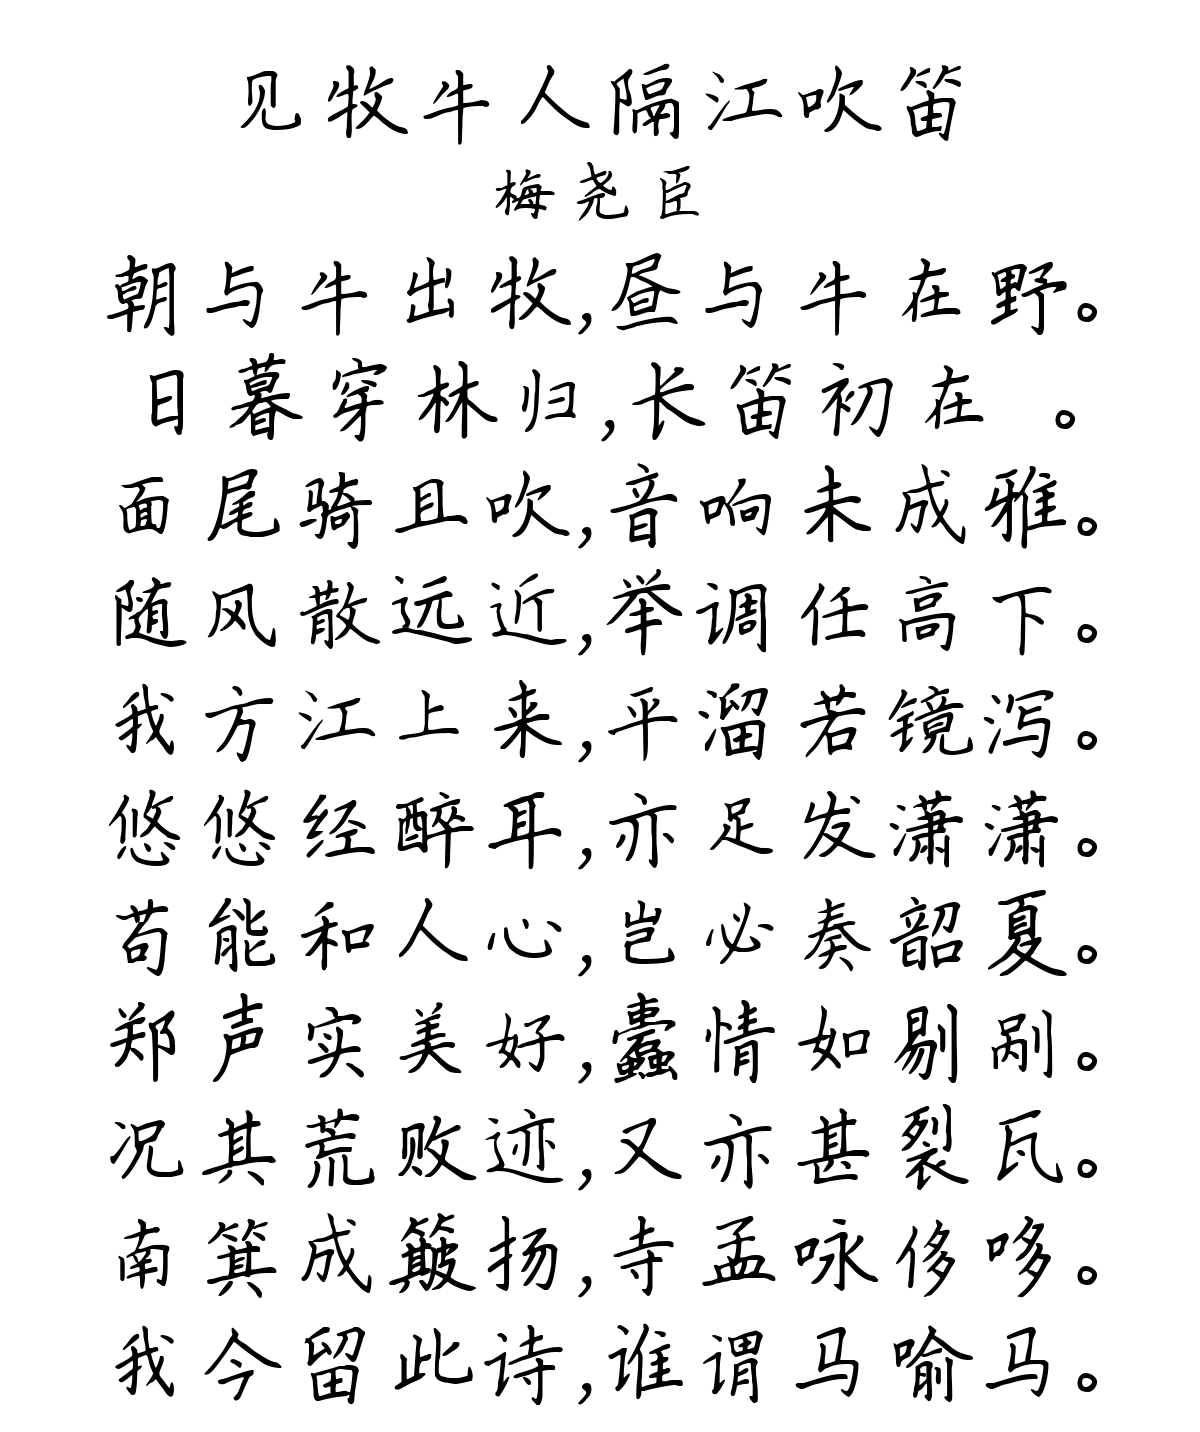 见牧牛人隔江吹笛
梅尧臣
朝与牛出牧,昼与牛在野。
日暮穿林归,长笛初在 。
面尾骑且吹,音响未成雅。
随风散远近,举调任高下。
我方江上来,平溜若镜泻。
悠悠经醉耳,亦足发潇潇。
苟能和人心,岂必奏韶夏。
郑声实美好,蠹情如剔剐。
况其荒败迹,又亦甚裂瓦。
南箕成簸扬,寺孟咏侈哆。
我今留此诗,谁谓马喻马。